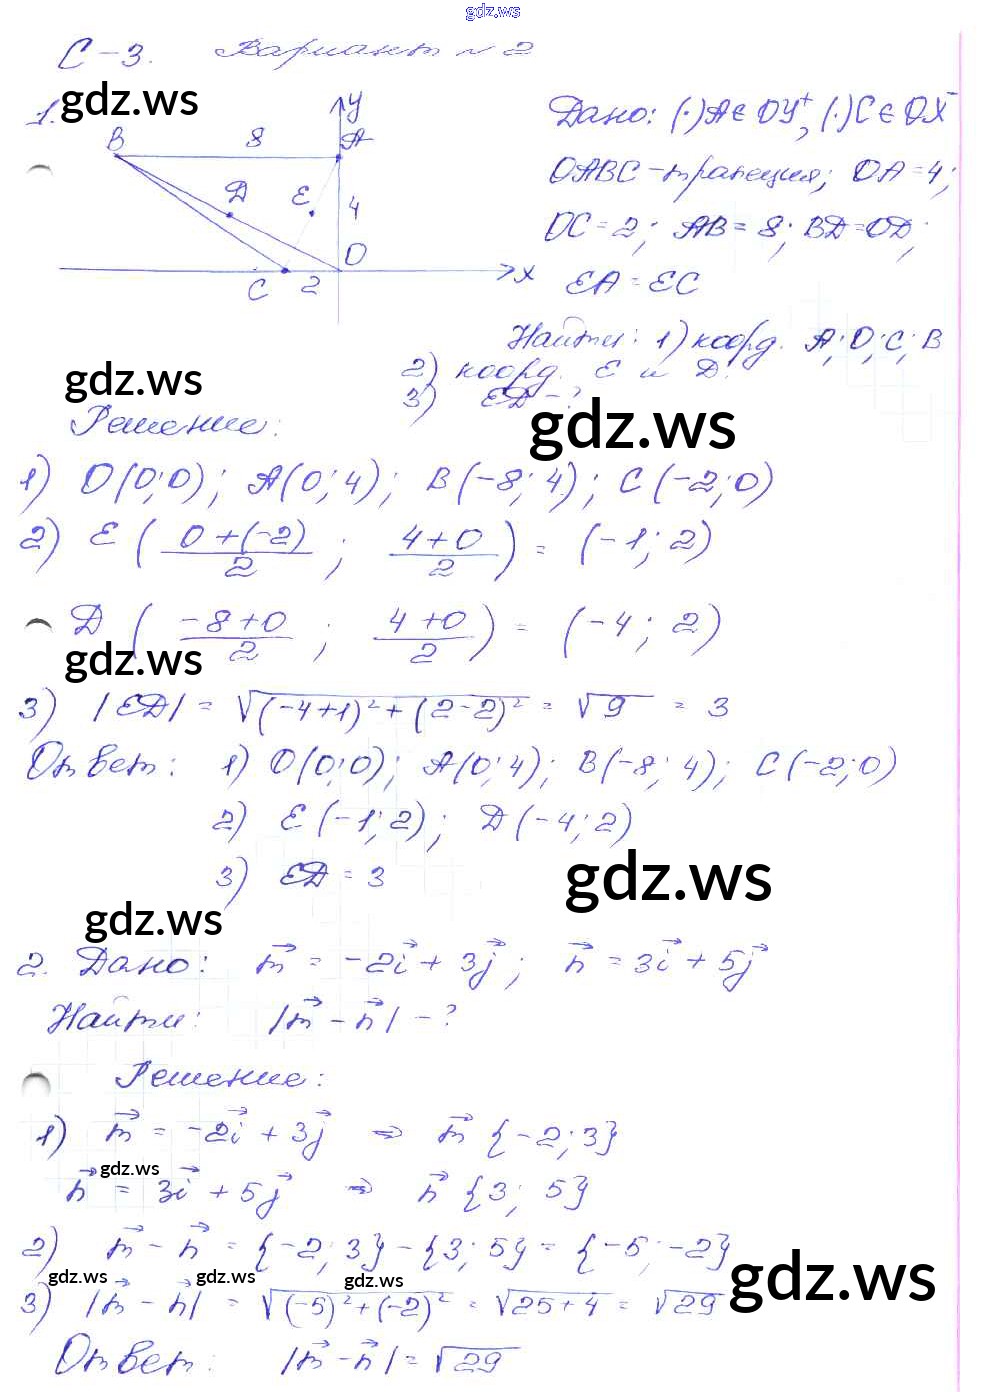 gdz.ws
С-3. Вариант №2
gdz.ws
1.
y
B 8 A
D E
4
O
C 2 x
Дано: (·)A∈OY⁺, (·)C∈OX⁻
OABC - трапеция; OA=4;
OC=2; AB=8; BD=OD;
EA=EC
Найти: 1) коорд. A; O; C; B
2) коорд. E и D.
3) ED-?
gdz.ws
gdz.ws
Решение:
1) O(0;0); A(0;4); B(-8;4); C(-2;0)
2) E ( (0+(-2))/2 ; (4+0)/2 ) = (-1; 2)
D ( (-8+0)/2 ; (4+0)/2 ) = (-4; 2)
gdz.ws
3) |ED| = √((-4+1)²+(2-2)²) = √9 = 3
Ответ: 1) O(0;0); A(0;4); B(-8;4); C(-2;0)
2) E(-1;2); D(-4;2)
3) ED = 3
gdz.ws
gdz.ws
2. Дано: m⃗ = -2i⃗ + 3j⃗; n⃗ = 3i⃗ + 5j⃗
Найти: |m⃗ - n⃗| - ?
Решение:
1) m⃗ = -2i⃗ + 3j⃗ ⇒ m⃗ {-2; 3}
gdz.ws
n⃗ = 3i⃗ + 5j⃗ ⇒ n⃗ {3; 5}
2) m⃗ - n⃗ = {-2; 3} - {3; 5} = {-5; -2}
gdz.ws gdz.ws gdz.ws gdz.ws
3) |m⃗ - n⃗| = √((-5)²+(-2)²) = √25+4 = √29
Ответ: |m⃗ - n⃗| = √29